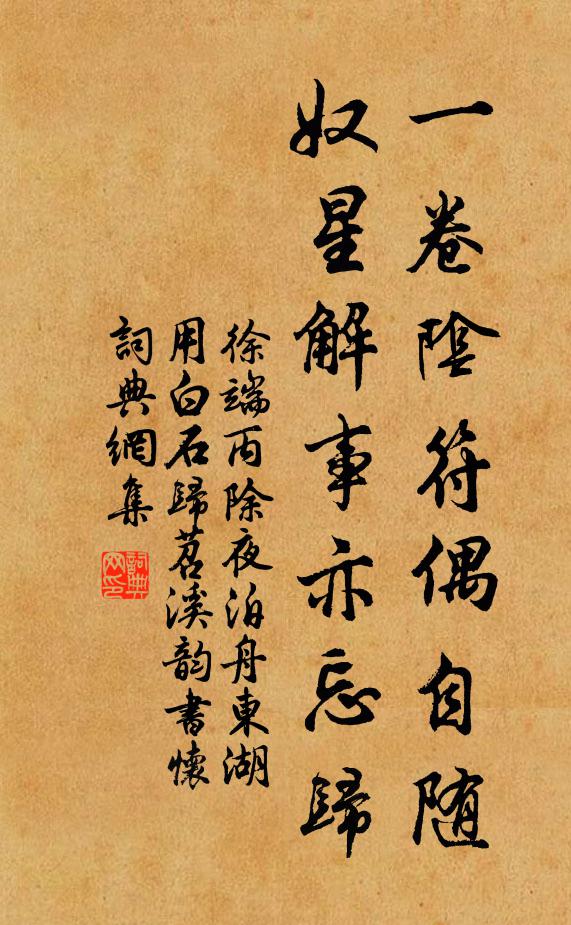 一卷陰符偶自随
奴星解事亦忘歸
徐端丙除夜泊舟東湖
用白石歸苕溪韵書懷
詞典網集
詞典
网印